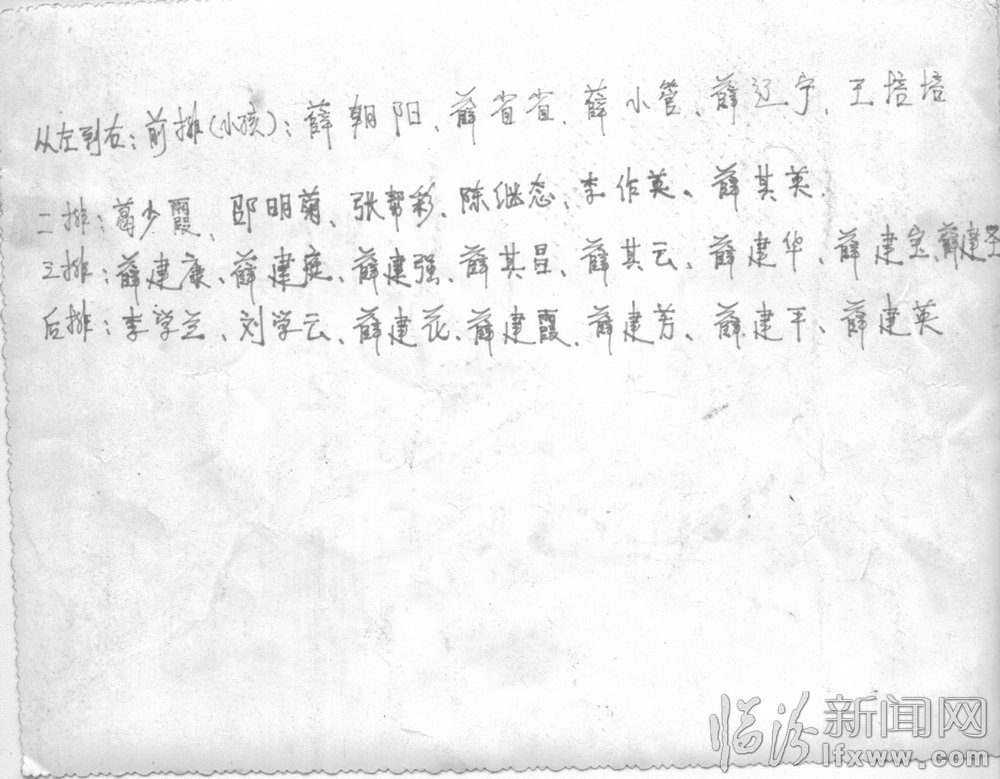 从左到右：前排（小孩）：薛朝阳、薛省省、薛小管、薛辽宁、王培培
二排：葛少霞、邵明菊、张帮彩、陈继态、李作英、薛其英
三排：薛建康、薛建庭、薛建强、薛其昌、薛其云、薛建华、薛建宝、薛建
后排：李学兰、刘学云、薛建花、薛建霞、薛建芳、薛建平、薛建英
临汾新闻网
lfxww.com